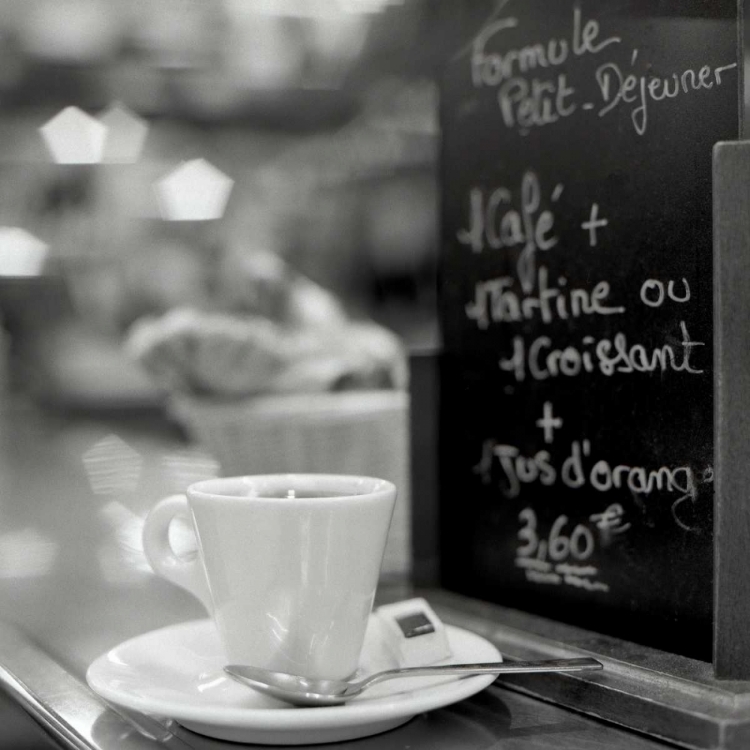 Formule
Petit-Déjeuner
1 Café +
1 Tartine ou
1 Croissant
+
1 Jus d'orange
3,60€